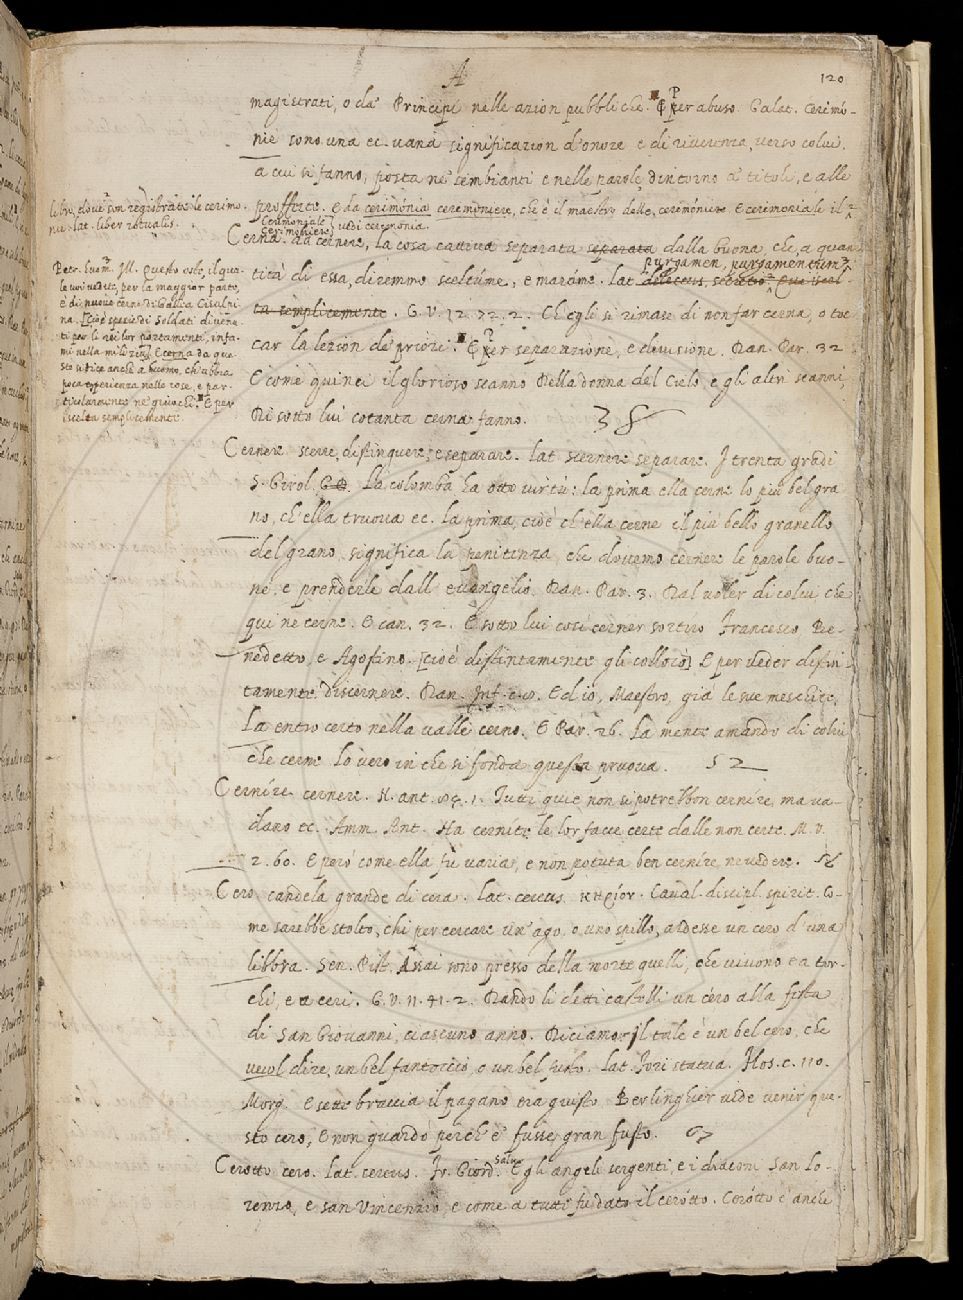 A
120
magistrati, o da' Principi nelle azion pubbliche. E per abuso. Galat. Cerimó-
nie sono una ec. vana significazion d'onore e di riverenza, verso colui,
a cui si fanno, posta ne' sembianti e nelle parole, dintorno a' titoli, e alle
profferte. E da cerimónia ceremoniere, che è il maestro delle cerimónie. E ceremoniale il
libro, dove son registrate le cerimo-
nie. lat. liber ritualis.
Cerimoniale
Cerimoniere] vedi ceremonia.
Cerna. da cernere, la cosa cattiva separata separata dalla buona, che, a quan-
purgamen, purgamentum
tità di essa, diremmo scelúme, e marame. Lat.
ta semplicemente. G. V. 12. 72. 2. Ch'egli si rimase di non far cerna, o toc
car la lezion de' priori. E per separazione, e divisione. Dan. Par. 32
E come quinci il glorioso scanno Della donna del Cielo, e gli altri scanni
Di sotto lui cotanta cerna fanno.
Petr. huom. Ill. Questo oste, il qua-
le voi vedete, per la maggior parte,
è di nuove cerne di Gallia Cisalpi-
na. [Cioè spezie di Soldati divenu-
ti per li rei lor portamenti, infa-
mi nella milizia] E cerna da que-
sto si dice anche a huomo, ch'abbia
poca esperienza nelle cose, e par-
ticolarmente ne' giuochi. E per
iscelta semplicemente
Cernere scerre, distinguere, e separare. Lat. scernere separare. I trenta gradi
S. Girol. La colomba ha otto virtù: la prima ella cerne lo più bel gra
no, ch'ella truova ec. la prima, cioè ch'ella cerne il più bello granello
del grano, significa la penitenza, che dovemo cernere le parole buo-
ne, e prenderle dall'evangelio. Dan. Par. 3. Dal voler di colui che
qui ne cerne. E can. 32. E sotto lui così cerner sortiro Francesco Be-
nedetto, e Agostino. [cioè distintamente gli collocò] E per veder distin-
tamente, discernere. Dan. Inf. Ed io, Maestro, già le sue meschite
Là entro certo nella valle cerno. E Par. 26. La mente amando di colui
che cerne Lo vero in che si fonda questa pruova. 52
Cernire cernere. N. ant. Tutti quie non si potrebbon cernire, ma va-
dano ec. Amm. Ant. Ha cernite le lor facce certe dalle non certe. M. V.
2. 60. E però come ella fu varia, e non potuta ben cernire, ne vedere.
Cero. candela grande di cera. Lat. cereus. κηρίον. Caval. discipl. spirit. Co-
me sarebbe stolto, chi per cercare un'ago, o uno spillo, ardesse un cero d'una
libbra. Sen. Pist. Assai sono presso della morte quelli, che vivono e a tor-
chi, e a ceri. G. V. 11. 41. 2. Dando li detti castelli un céro alla festa
di San Giovanni, ciascuno anno. Diciamo, il tale è un bel cero, che
vuol dire, un bel fantoccio, o un bel fusto. Lat. Fori statua. Flos. c. 110.
Morg. E sette braccia il pagano era giusto Berlinghier vide venir que-
sto cero, E non guardò perch'e' fusse gran fusto. 67
Cerotto cero. Lat. cereus. Fr. Giord. Salv. E gli angeli sergenti, e i diaconi San Lo-
renzo, e San Vincenzio, e come a tutti fu dato il cerótto. Cerótto è anche